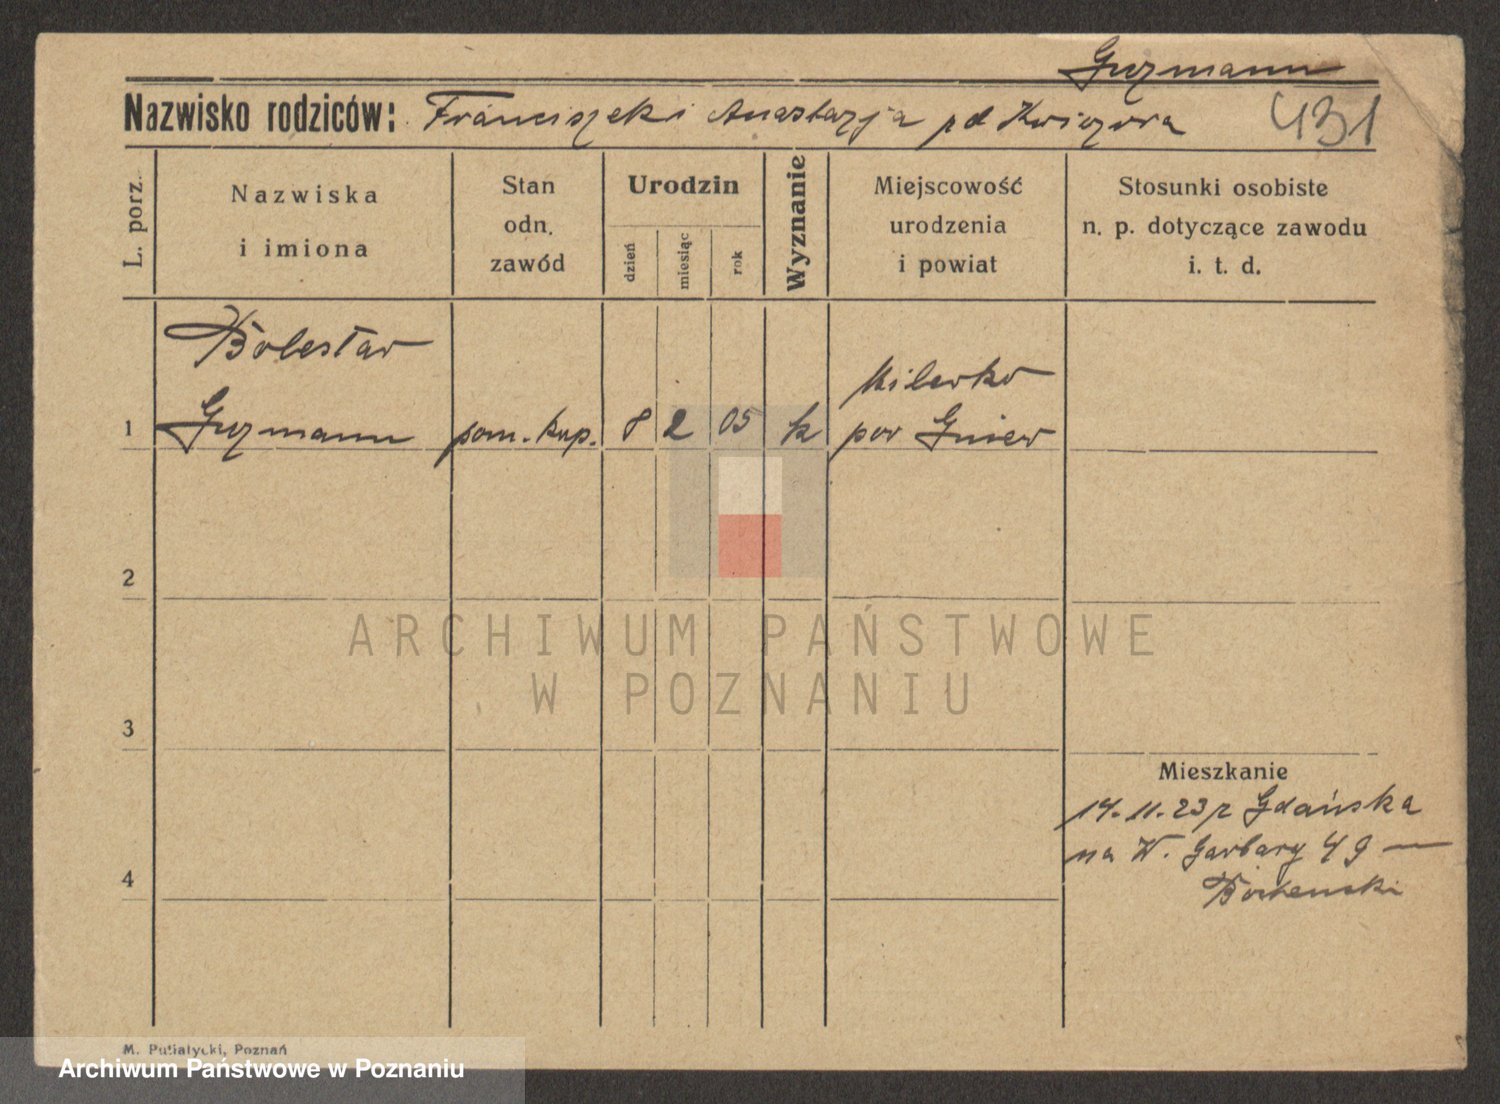 Guzmann
Nazwisko rodziców: Franciszek i Anastazja pd
431
L. porz.
Nazwiska
i imiona
Stan
odn.
zawód
Urodzin
dzień
miesiąc
rok
Wyznanie
Miejscowość
urodzenia
i powiat
Stosunki osobiste
n. p. dotyczące zawodu
i. t. d.
Bolesław
1 Guzmann pom. kup. 8 2 05 k
Milewko
pow Gniew
2
3
4
Mieszkanie
14. 11. 23 z Gdańska
na W. Garbary 49 —
M. Putiatycki, Poznań
ARCHIWUM PAŃSTWOWE
W POZNANIU
Archiwum Państwowe w Poznaniu